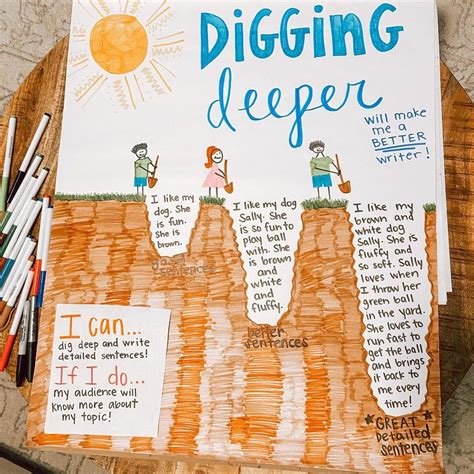 DiGGiNG
deeper
will make
me a
BETTER
writer!
I like my
dog. She
is fun.
She is
brown.
good
sentences
I like my dog
Sally. She
is so fun to
play ball
with. She
is brown
and
white
and
fluffy.
better
sentences
I like my
brown and
white dog
Sally. She is
fluffy and
so soft. Sally
loves when
I throw her
green ball
in the yard.
She loves to
run fast to
get the ball
and brings
it back to
me every
time!
GREAT
Detailed
sentences
I can...
dig deep and write
detailed sentences!
If I do...
my audience will
know more about
my topic!